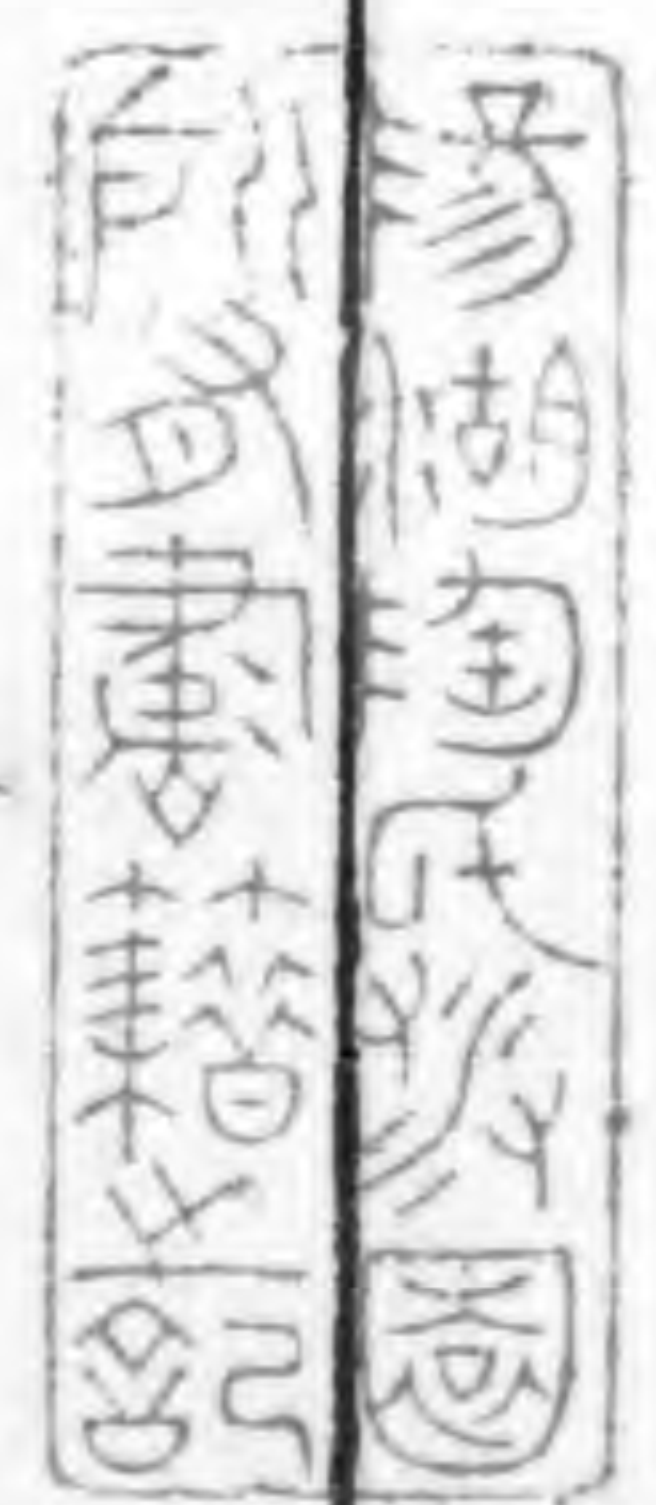 陽湖陶氏涉園
所有書籍之記